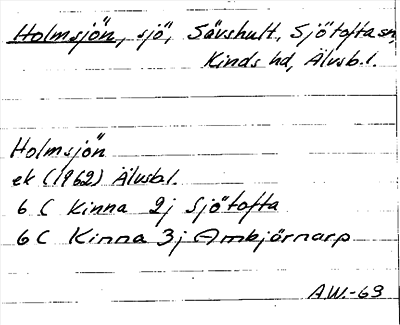 Holmsjön, sjö, Sävshult, Sjötofta sn,
Kinds hd, Älvsb.l.
Holmsjön
ek (1962) Älvsb.l.
6 C Kinna 2j Sjötofta
6 C Kinna 3j Ambjörnarp
A.W.-69